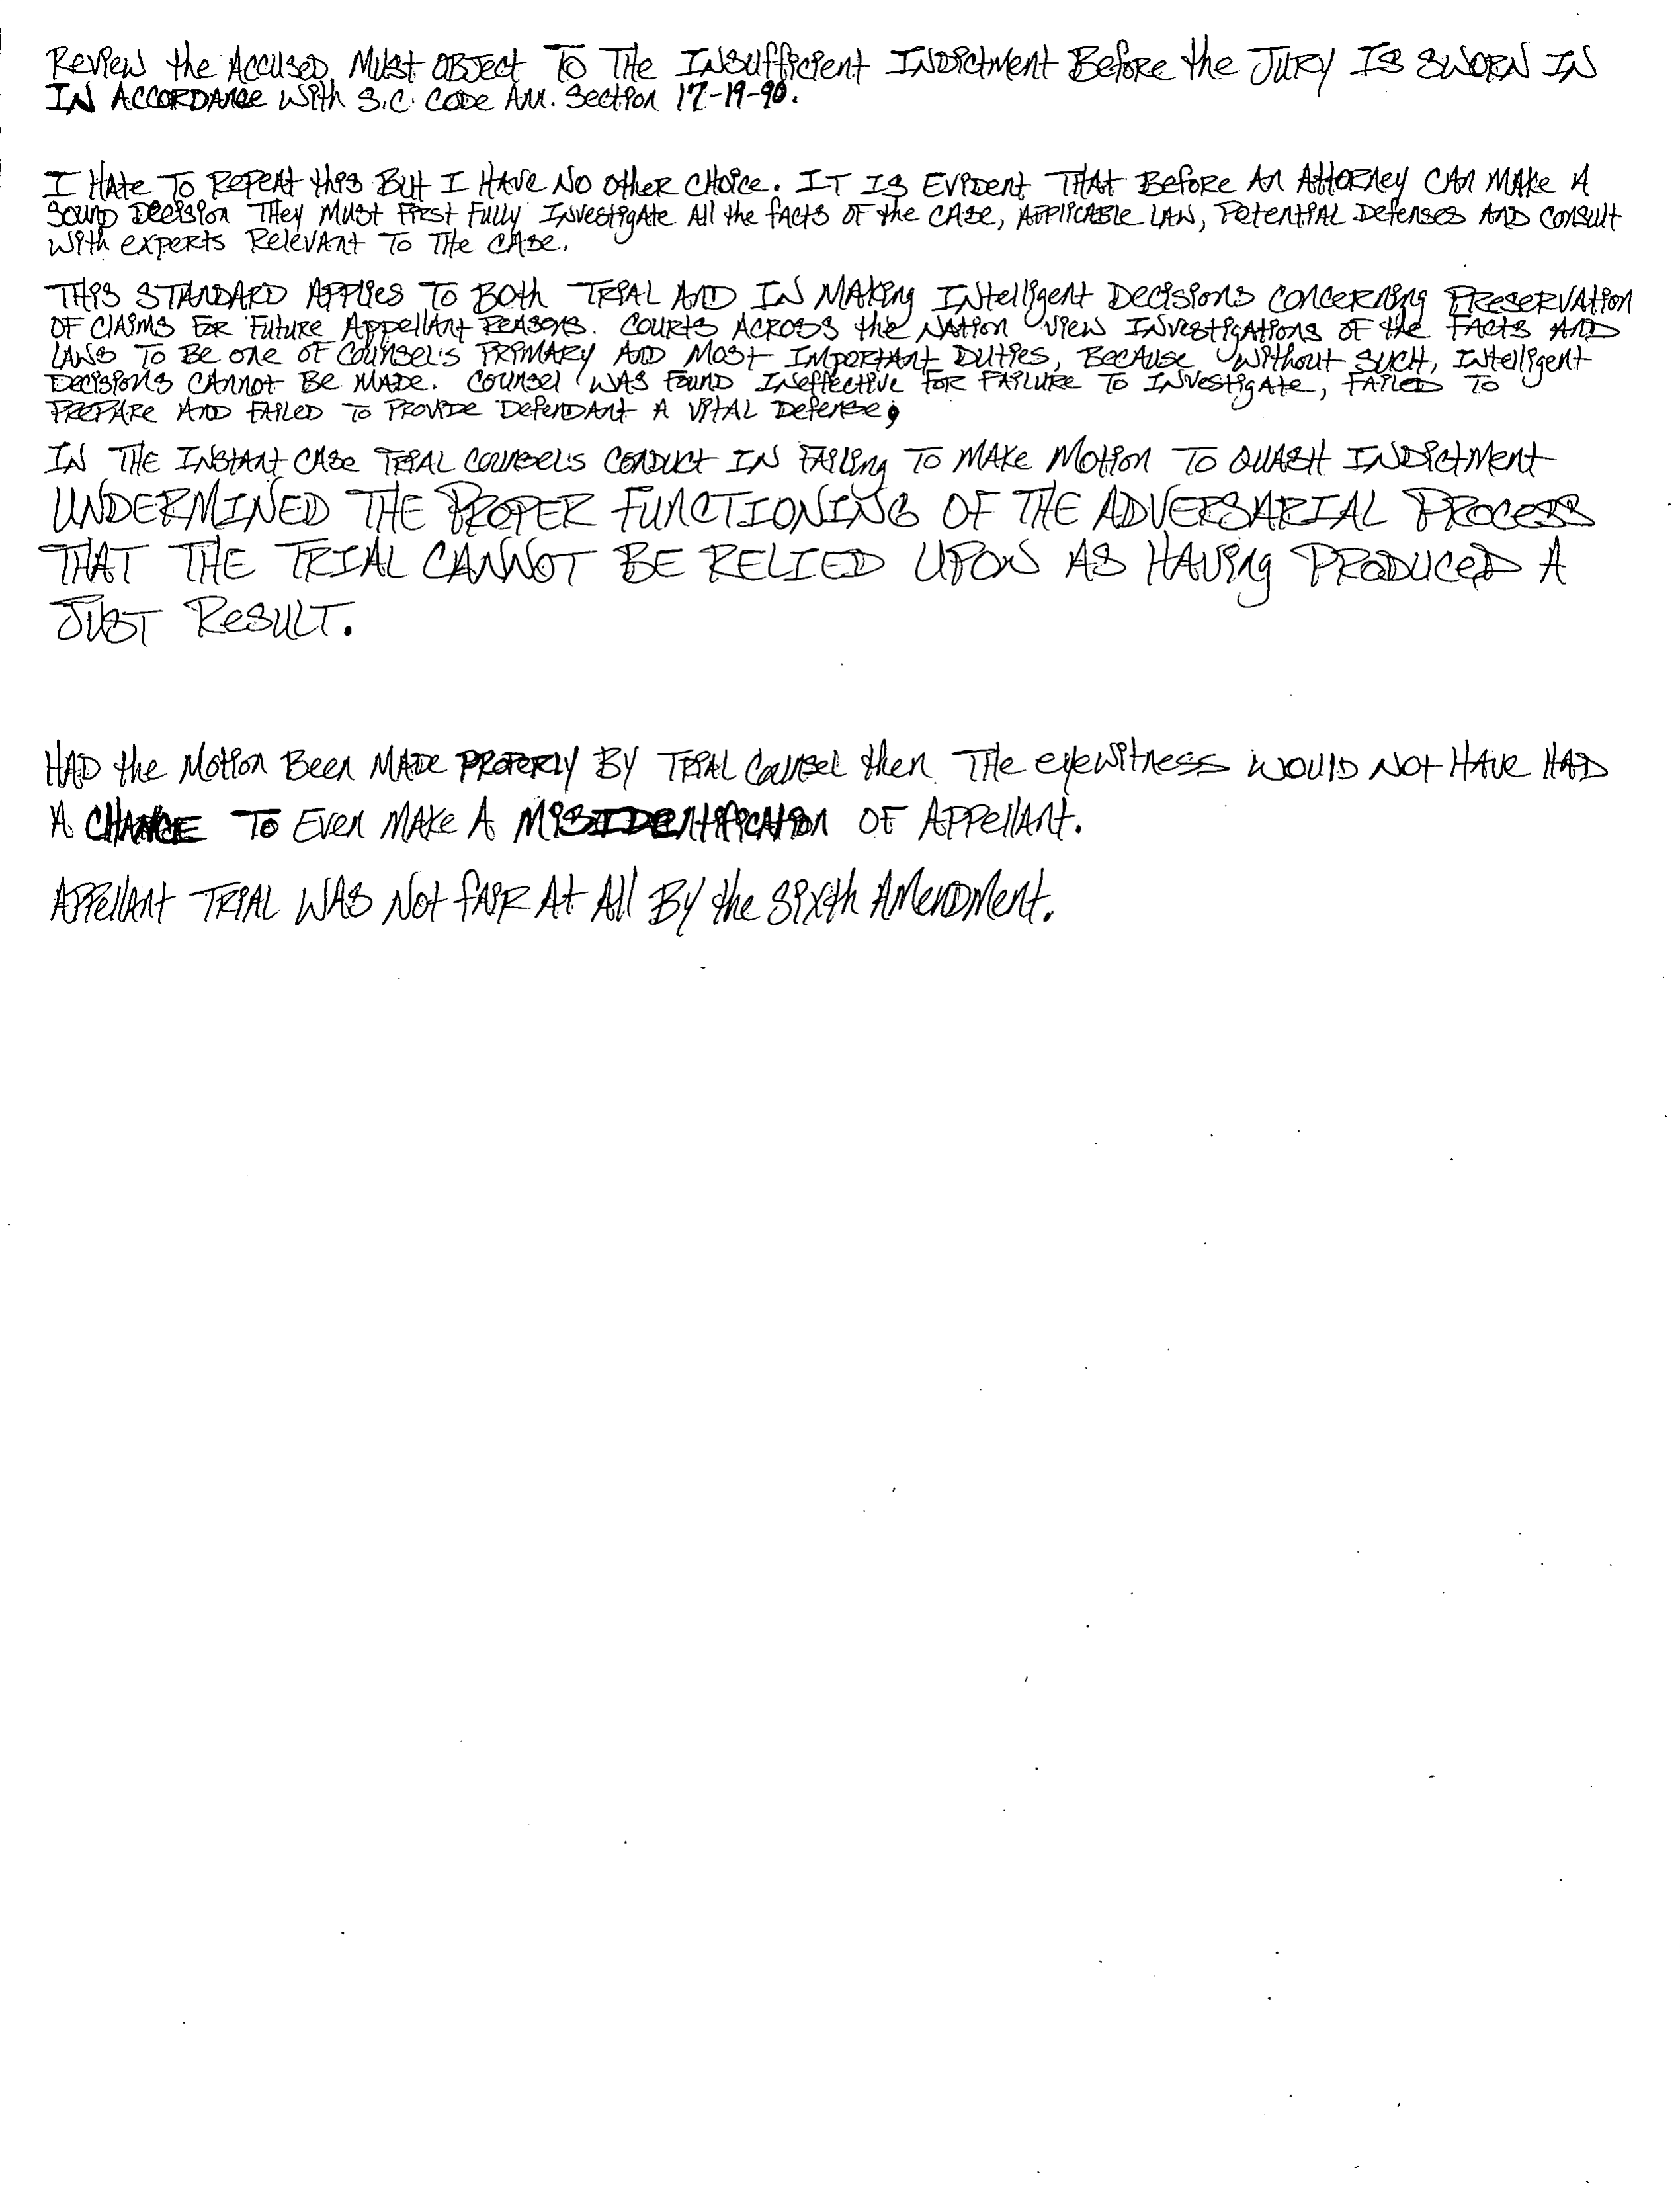 Review the Accused Must OBJect TO THE INSufficient INDictment Before the JURY IS SWORN IN
IN ACCORDANce with S.C. CODE Ann. Section 17-19-90.
I HAte TO RePeAt this But I HAVE NO Other CHOice. IT IS EviDent THAT Before An Attorney CAn MAKe A
Sound Decision They Must First Fully Investigate All the fActs OF the CASe, APPlicABle LAW, Potential Defenses AND Consult
With experts Relevant To The CASe.
THIS STANDARD APPlies TO Both TRIAL AND IN MAKing INtelligent Decisions CONCERNing PRESERVATion
OF ClAiMS FOR Future Appellant REASons. COURTS ACROSS the NATion View Investigations OF the FACTS AND
LAWS TO Be one OF Counsel's PRIMARY AND MOSt IMPORTANt Duties, BecAuse Without SUCH, INtelligent
Decisions CAnnot Be MADe. Counsel WAS Found INeffective FOR FAiLURe TO INvestigAte, FAILeD TO
PREPARe AND FAILED To PROViDe DefenDAnt A ViTAL Defense;
IN THE INSTAnt CASe TRIAL Counsel's CONDUCT IN FAiling TO MAKe Motion TO QUASH INDictment
UNDERMINED THE PROPER FUNCTIONING OF THE ADVERSARIAL PROCESS
THAT THE TRIAL CANNOT BE RELIED UPON AS HAVing PRODUCED A
JUST ReSULT.
HAD the Motion Been MADe PROPERly BY TRIAL Counsel then THe eyewitness WOULD NOt HAVe HAD
A CHANCE TO Even MAKe A MISIDentificAtion OF APPellAnt.
APPellAnt TRIAL WAS Not fAiR At All By the Sixth AmenDment.